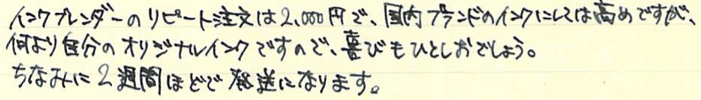 インクブレンダーのリピート注文は2,000円で、国内ブランドのインクにしては高めですが、
何より自分のオリジナルインクですので、喜びもひとしおでしょう。
ちなみに2週間ほどで発送になります。